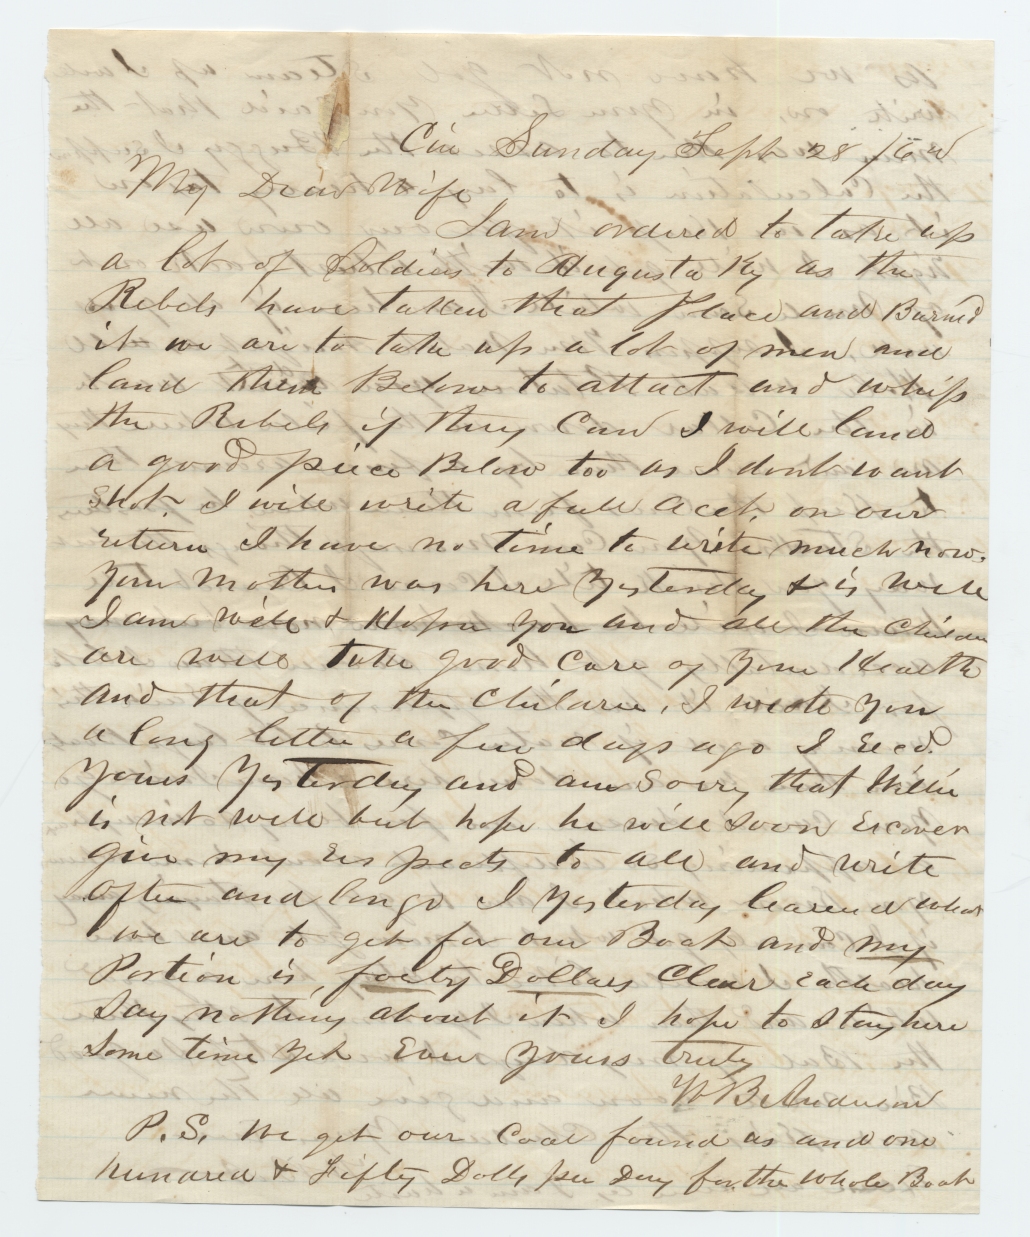 Cin Sunday Sept 28 /62
My Dear Wife
I am ordered to take up
a lot of Soldiers to Augusta Ky as the
Rebels have taken that Place and Burnd
it we are to take up a lot of men and
land them Below to attact and whip
the Rebels if they Can I will land
a good piece Below too as I dont want
Shot. I will write a full acct. on our
return I have no time to write much now.
Your Mother was here Yesterday & is well
I am well & Hope You and all the Children
are well take good Care of Your Health
and that of the Children, I wrote You
a long letter a few days ago I Recd.
Yours Yesterday and am Sorry that Willie
is not well but hope he will soon recover
give my Respects to all and write
often and longe I Yesterday learend what
we are to get for our Boat and my
Portion is, forty Dollars Clear each day
Say nothing about it I hope to stay here
Some time yet Ever Yours truly
W B Anderson
P.S. We get our Coal found us and one
hundred & Fifty Dolls per Day for the Whole Boat